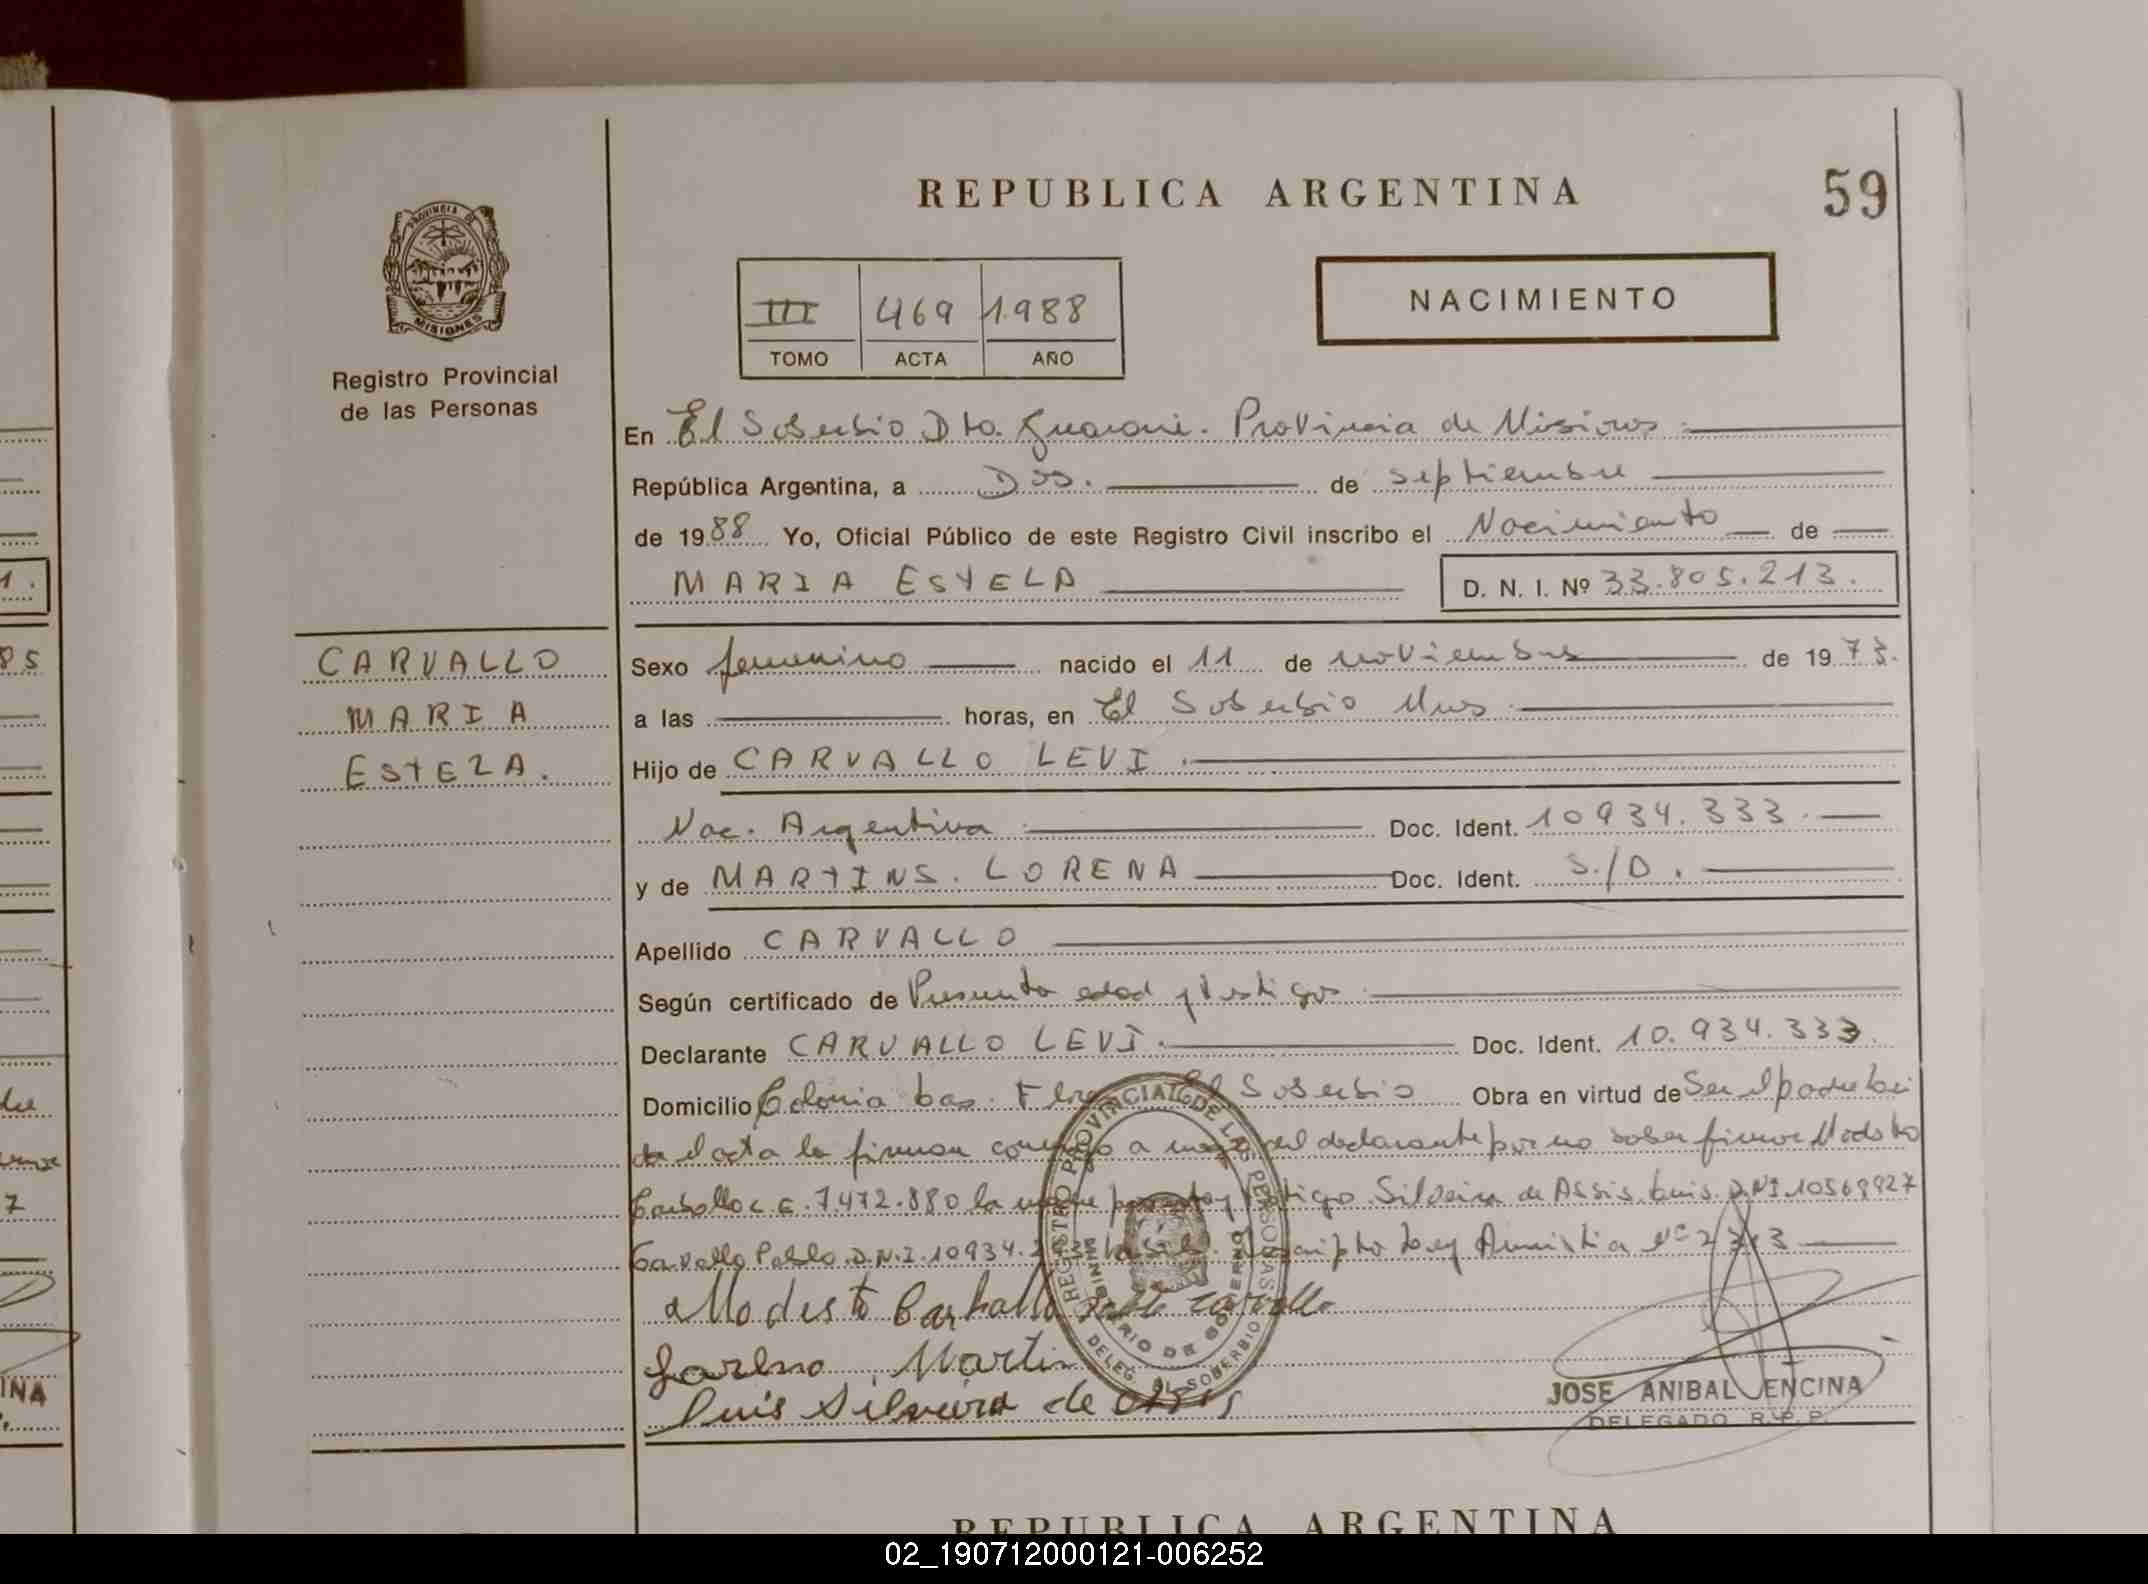 REPUBLICA ARGENTINA
59
PROVINCIA DE
MISIONES
Registro Provincial
de las Personas
III 469 1988
TOMO ACTA AÑO
NACIMIENTO
En El Soberbio Dto. Guarani. Provincia de Misiones
República Argentina, a Dos. de septiembre
de 1988 Yo, Oficial Público de este Registro Civil inscribo el Nacimiento de
MARIA ESTELA D. N. I. Nº 33.805.213.
CARVALLO
MARIA
ESTELA.
Sexo femenino nacido el 11 de noviembre de 1973.
a las horas, en El Soberbio Mnes
Hijo de CARVALLO LEVI
Nac. Argentina Doc. Ident. 10934.333.
y de MARTINS. LORENA Doc. Ident. S./D.
Apellido CARVALLO
Según certificado de Presunta edad y testigos
Declarante CARVALLO LEVI. Doc. Ident. 10.934.333.
Domicilio Colonia El Soberbio Obra en virtud de Ser el padre
el acta la firman a del declarante por no saber firmar Modesto
Carballo 7.472.880 la testigo Silveira de Assis Luis D.NI.10569927
Carvallo Pablo.D.N.I.10934. Ley Amnistia
Modesto Carballo Carvallo
Martin
Luis Silveira de
REGISTRO PROVINCIAL DE LAS PERSONAS
MINISTERIO DE GOBIERNO
DELEG. EL SOBERBIO
JOSE ANIBAL ENCINA
DELEGADO R. P. P.
1.
85
7
INA
REPUBLICA ARGENTINA
02_190712000121-006252